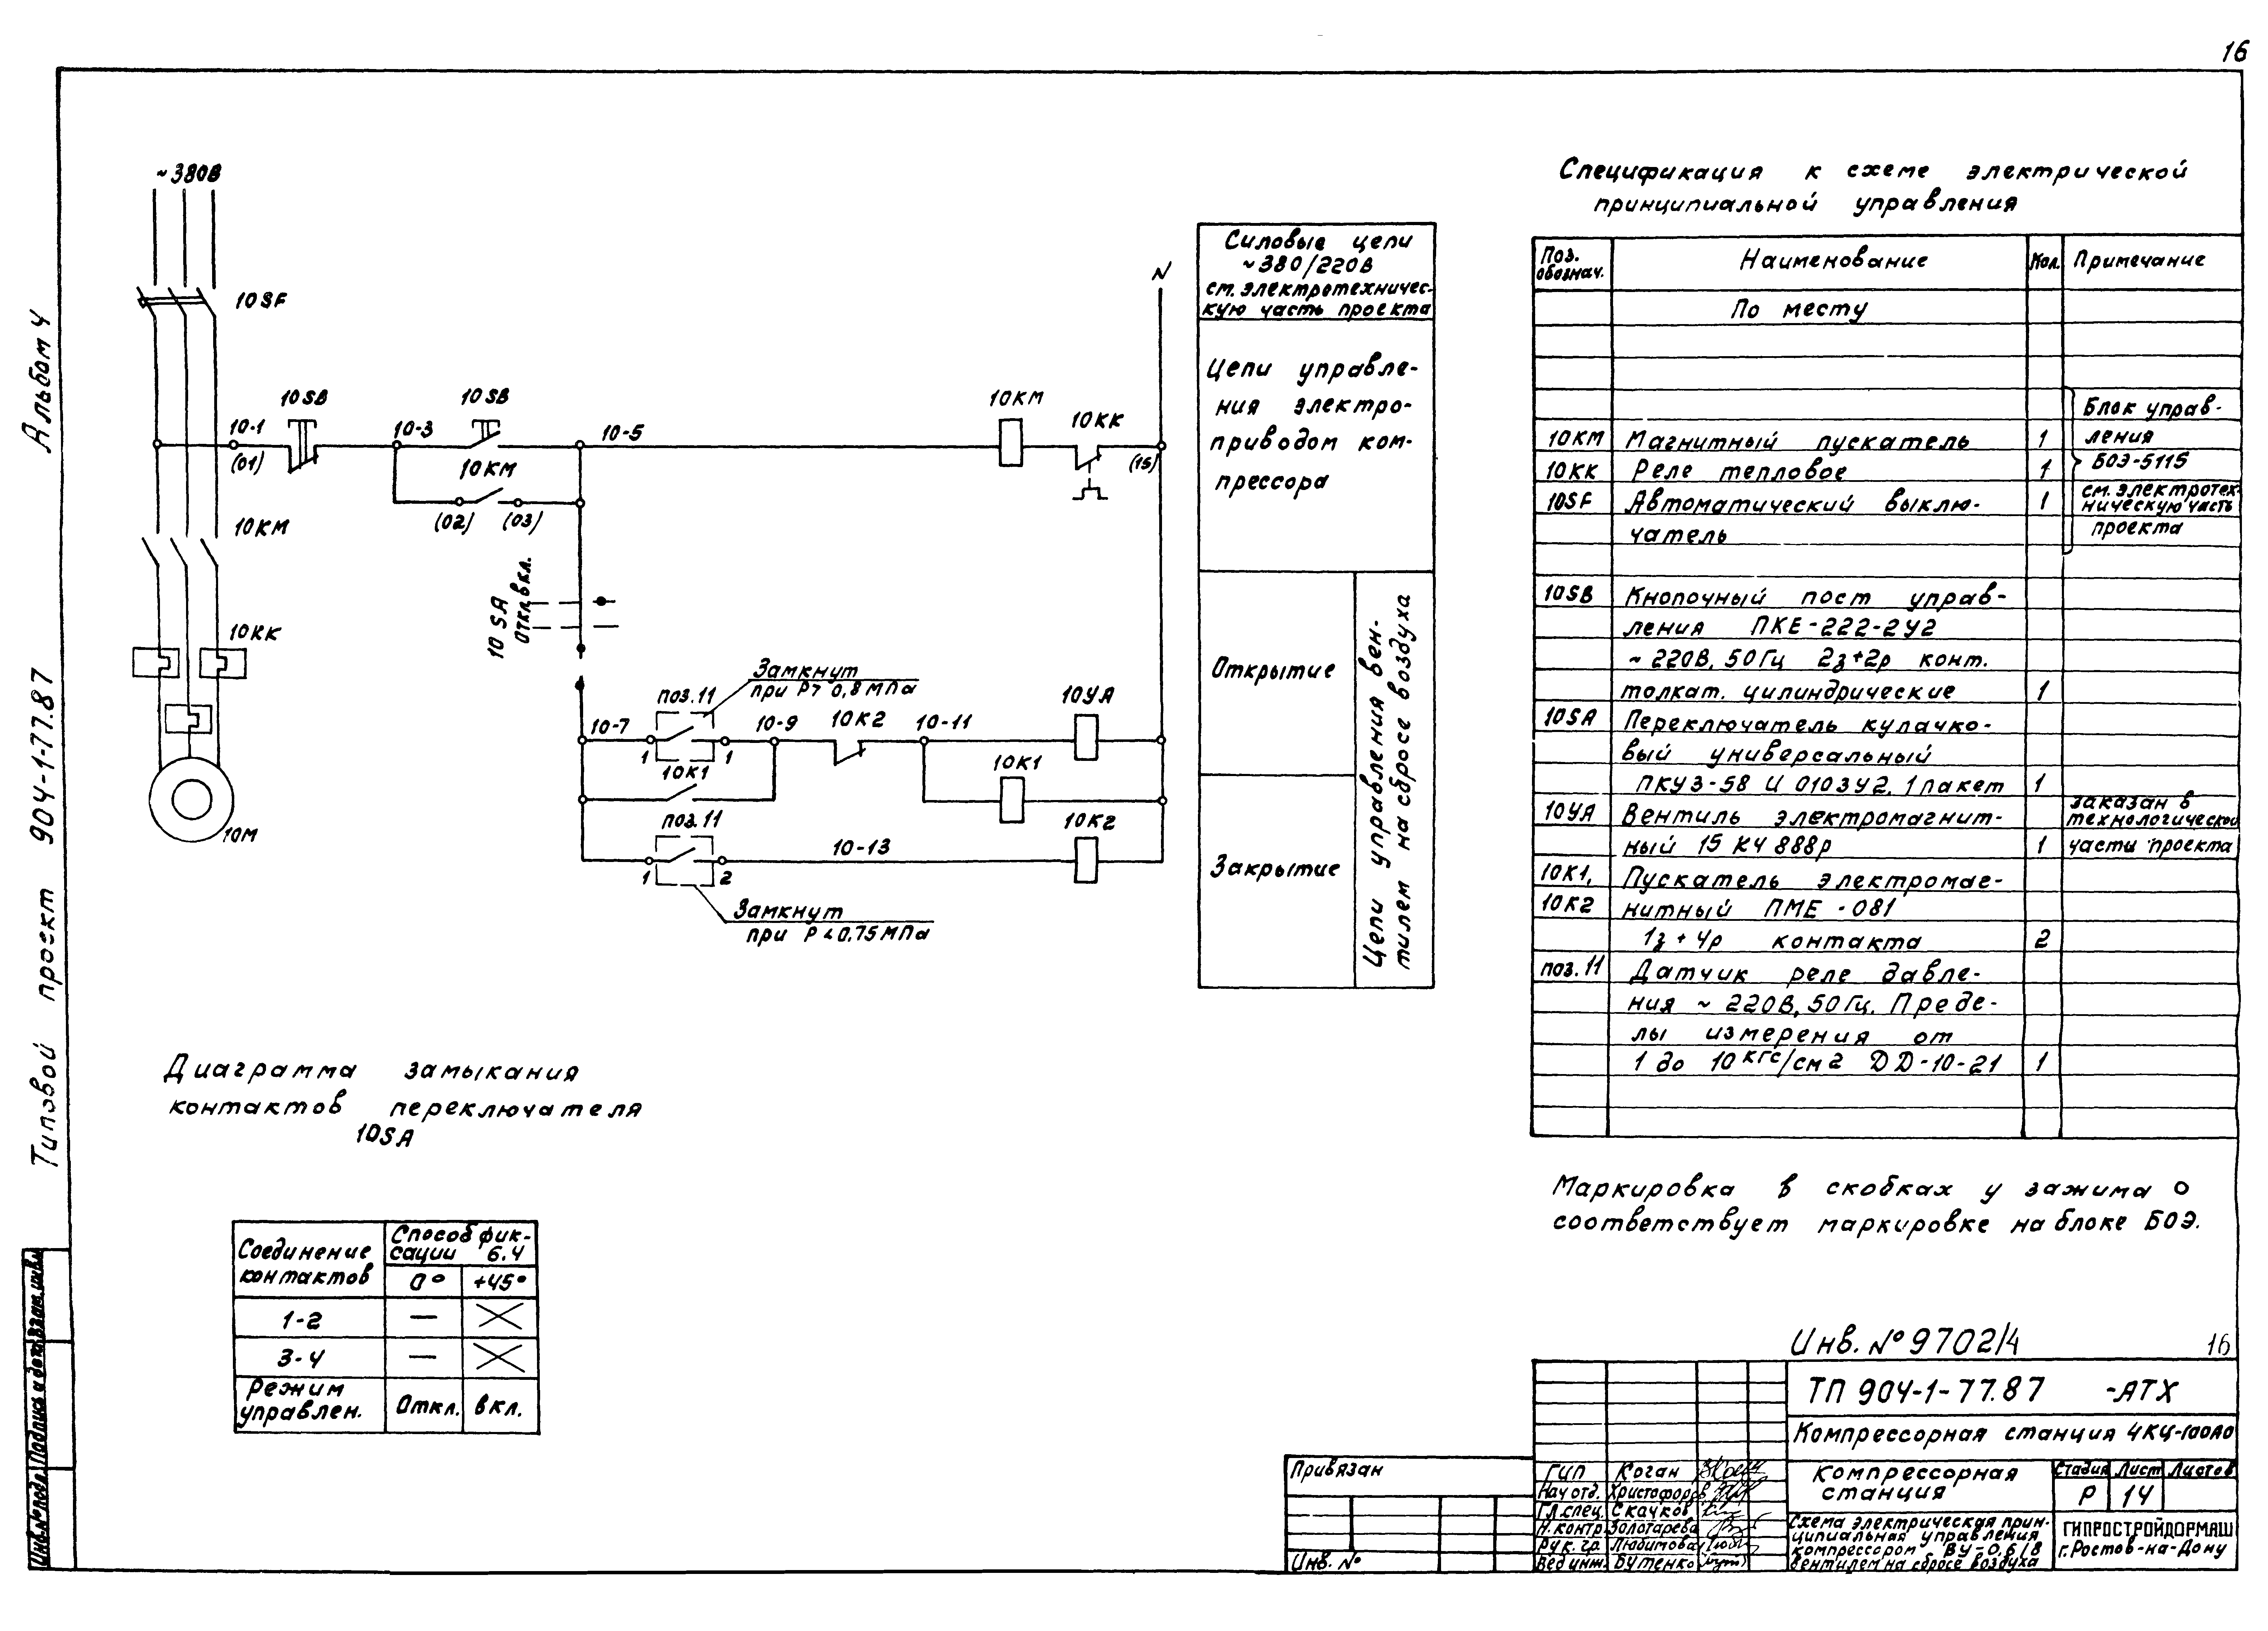 16
Альбом 4
Типовой проект 904-1-77.87
~380В
10SF
10SB
10SB
10КМ
10КК
N
10-1
(01)
10-3
10-5
(15)
10КМ
(02)
(03)
10КМ
10КК
10М
10SA
Откл.
Вкл.
Замкнут
при Р> 0,8 МПа
поз.11
10-7
1
1
10-9
10К2
10-11
10УА
10К1
10К1
поз.11
1
2
10-13
10К2
Замкнут
при Р<0.75МПа
Силовые цепи
~380/220В
см. электротехничес-
кую часть проекта
Цепи управле-
ния электро-
приводом ком-
прессора
Открытие
Закрытие
Цепи управления вен-
тилем на сбросе воздуха
Спецификация к схеме электрической
принципиальной управления
Поз. обознач.
Наименование
Кол.
Примечание
По месту
Блок управ-
10КМ Магнитный пускатель 1 ления
10КК Реле тепловое 1 БОЭ-5115
10SF Автоматический выклю- 1 см. электротех-
ническую часть
чатель проекта
10SB Кнопочный пост управ-
ления ПКЕ-222-2У2
~220В, 50Гц 2з+2р конт.
толкат. цилиндрические 1
10SA Переключатель кулачко-
вый универсальный
ПКУ3-58 И 0103У2. 1 пакет 1
10УА Вентиль электромагнит- заказан в
технологической
ный 15 кч 888р 1 части проекта
10К1, Пускатель электромаг-
10К2 нитный ПМЕ-081
1з + 4р контакта 2
поз.11 Датчик реле давле-
ния ~ 220В, 50Гц. Преде-
лы измерения от
1 до 10 кгс/см2 ДД-10-21 1
Маркировка в скобках у зажима о
соответствует маркировке на блоке БОЭ.
Диаграмма замыкания
контактов переключателя
10SA
Соединение
контактов
Способ фик-
сации 6.4
0° +45°
1-2 —
3-4 —
Режим
управлен.
Откл. Вкл.
Инв. № 9702/4
16
ТП 904-1-77.87 -АТХ
Компрессорная станция 4КЦ-100А0
Компрессорная
станция
Стадия Лист Листов
Р 14
Схема электрическая прин-
ципиальная управления
компрессором ВУ-0,6/8
вентилем на сбросе воздуха
ГИПРОСТРОЙДОРМАШ
г.Ростов-на-Дону
Привязан
Инв. №
ГИП Коган
Нач отд. Христофоров
Гл.спец. Скачков
Н.контр. Золотарева
Рук.гр. Любимова
Вед.инж. Бутенко
Инв.№подл.
Подпись и дата
Взам.инв.№